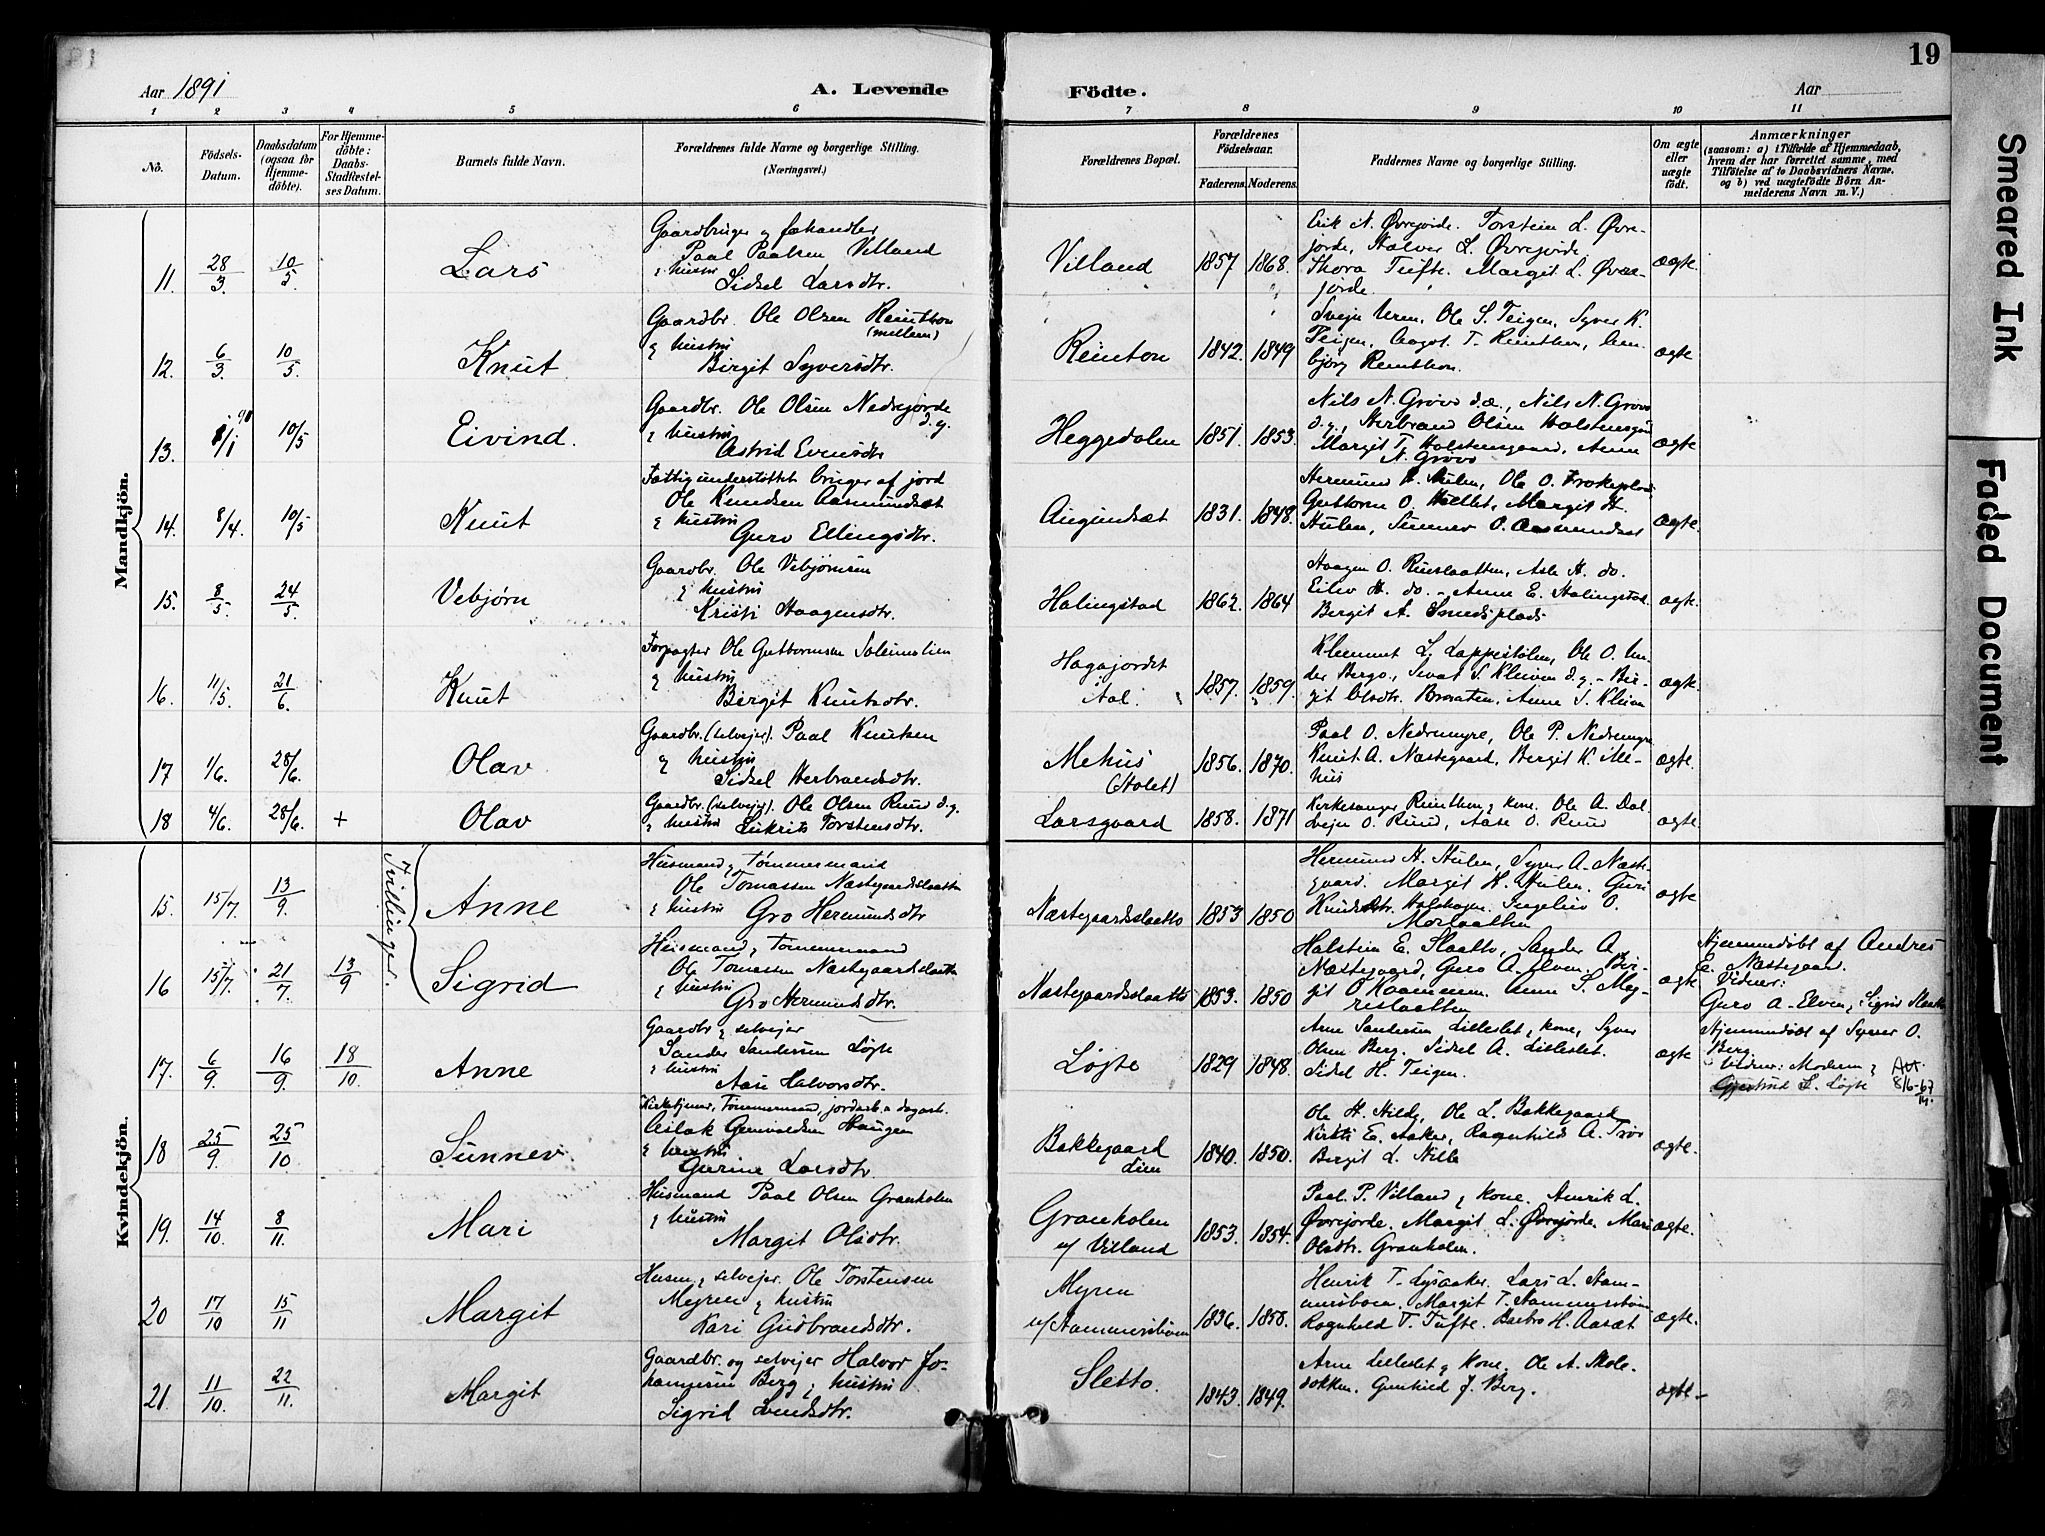 Aar 1891
A. Levende
Födte.
Aar
19
1 2 3 4 5 6 7 8 9 10 11
No.
Födsels-
Datum.
Daabsdatum
(ogsaa for
Hjemme-
döbte).
For Hjemme-
döbte:
Daabs-
Stadfæstel-
ses Datum.
Barnets fulde Navn.
Forældrenes fulde Navne og borgerlige Stilling.
(Næringsvei.)
Forældrenes Bopæl.
Forældrenes
Födselsaar.
Faderens. Moderens.
Faddernes Navne og borgerlige Stilling.
Om ægte
eller
uægte
födt.
Anmærkninger
(saasom: a) i Tilfælde af Hjemmedaab,
hvem der har forrettet samme, med
Tilföielse af to Daabsvidners Navne.
og b) ved uægtefödte Börn An-
melderens Navn m. V.)
Mandkjön.
11. 28/3. 10/5 Lars
Gaardbruger og fæhandler
Paal Paalsen Villand
& hustr
Sidsel Larsdtr.
Villand 1857 1868.
Erik N. Øvrejorde. Torstein L. Øvre-
jorde, Halvor L. Øvrejorde
Thora Tufte. Margit L. Øvre-
jorde
ægte.
12. 6/3. 10/5. Knut
Gaardbr. Ole Olsen Reinthon
(mellem)
& hustru
Birgit Syversdtr.
Reinton 1842. 1849
Ole S. Teigen, Syver K.
Teigen, Aagot T. Reinthon,
bjørg Reinthon.
ægte
13. 10/5 Eivind.
Gaardbr. Ole Olsen Nedrejorde
d.y.
& hustru
Astrid Evensdtr
Heggedalen 1851. 1853.
Nils N. Grøvo d.æ., Nils N. Grøvo
d.y., Herbrand Olsen Holstensgaa
Margit T. Holstensgaard, Anne
N. Grøvo
ægte
14. 8/4. 10/5 Knut
Fattigunderstøttet bruger af jord
Ole Knudsen Aasmundsæt
& hustru
Guro Ellingsdtr.
Augundsæt 1831. 1848.
Hermund H. Hulen, Ole O.
Guttorm O. Hellet, Margit H.
Hulen, Sunnev O. Aasmundsæt
ægte.
15. 8/5 24/5 Vebjørn
Gaardbr. Ole Vebjørnsen
& hustru
Kristi Haagensdtr.
Halingstad 1862. 1864
Haagen O. Ruuslaatten, Asle H. do.
Eilev H. do. - Anne E. Halingstad.
Bergit A. Smedsplads
ægte.
16. 11/5. 21/6. Knut
Forpagter Ole Guttormsen Soleimslien
& hustru
Birgit Knutsdtr.
Hagajordet
i Aal. 1857. 1859.
Klemmet L. Lappestølen, Ole O. Un-
der Bergo, Sevat S. Kleiven d.y. - Bir-
git Olsdtr. Braaten, Anne S. Kleiven
ægte.
17 1/6. 28/6. Olav
Gaardbr. (selvejer). Paal Knutsen
& hustru
Sidsel Herbrandsdtr.
Mehus
(Holet) 1856. 1870.
Paal O. Nedremyre, Ole P. Nedremyre
Knut A. Næstegaard, Bergit K. Me-
hus
ægte.
18 4/6. 28/6. + Olav
Gaardbr. (selvejer). Ole Olsen Ruud d.y.
& hustru Liukrits Torstensdtr.
Larsgaard 1858. 1871
Kirkesanger Reinthon & kone. Ole A. Dal
Svejn O. Ruud, Aase O. Ruud
ægte.
Kvindekjön.
Tvillinger.
15. 15/7. 13/9. Anne
Husmand & Tømmermand
Ole Tomassen Næstegaardsslaatto
& hustru
Gro Hermundsdtr
Næstegaardsslaatto 1853 1850
Hermund H. Hulen, Syver A. Næste-
gaard. Margit H. Hulen. Guri
Knudsdtr. Halshagen. Ingeliv O.
Morlaatten
ægte
16 15/7. 21/7. 13/9 Sigrid
Husmand & Tømmermand
Ole Tomassen Næstegaardsslaatto
& hustru
Gro Hermundsdtr.
Næstegaardsslaatto 1853. 1850
Halstein E. Slaatto, Sander A.
Næstegaard, Guro A. Elven. Bir-
git O. Anne S. Myr-
reslaatten
ægte
Hjemmedøbt af Andres
E. Næstegaar.
Vidner:
Guro A. Elven, Sigrid Slaatto
17. 6/9. 16/9. 18/10. Anne
Gaardbr & selvejer
Sander Sandersen Løjte
& hustru
Aase Halvorsdtr.
Løjte 1829 1848.
Arne Sandersen Lilleslet & kone, Syver
Olsen Berg. Sidsel A. Lilleslet.
Sidsel H. Teigen.
ægte
Hjemmedøbt af Syver O.
Berg
Vidner: Moderen &
Gjertrud L. Løjte
Att.
8/6-67
18 25/9. 25/10 Sunnev.
Kirketjener, Tømmermand, jordarb. & dagarb.
Aslak Gunvaldsen Haugen
& hustru
Gurine Larsdtr.
Bakkegaard
Lien 1840. 1850.
Ole H. Hilde, Ole L. Bakkegaard
Kirsti E. Aaker, Ragnhild A. Trøo
Bergit L. Hille
ægte.
19. 14/10. 8/11. Mari
Husmand Paal Olsen Granholen
& hustru
Margit Olsdtr.
Granholen
u/ Villand 1853. 1854.
Paal P. Villand & kone. Amrik L.
Øvrejorde. Margit L. Øvrejorde, Mari
Olsdtr. Granholen.
ægte.
20 17/10 15/11 Margit
Husm. & selvejer. Ole Torstensen
Myren & hustru
Kari Gudbrandsdtr.
Myren
u/ Hammersbøen 1836. 1858.
Henrik T. Lysaaker. Lars L. Ham-
mersboen. Margit T. Hammersbøen
Ragnhild T. Tufte. Barbro H. Aasæt
ægte.
21. 11/10. 22/11. Margit
Gaardbr. og selvejer Halvor Jo-
hannesen Berg & hustru
Sigrid Svendsdtr.
Sletto. 1843. 1849.
Arne Lilleslet & kone. Ole A. Mole-
dokken. Gunhild J. Berg.
ægte
Smeared Ink
Faded Document